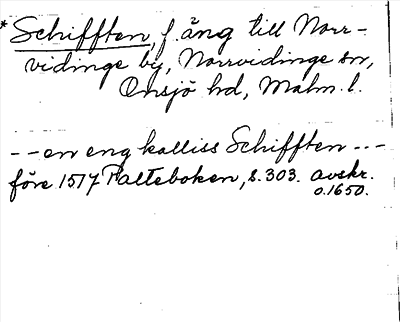 * Schifften, f. äng till Norr-
vidinge by, Norrvidinge sn,
Onsjö hd, Malm. l.
-- en eng kalliss Schifften ---
före 1517 Palteboken, s. 303. avskr.
o. 1650.